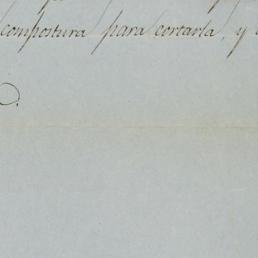 compostura para cortarla, y